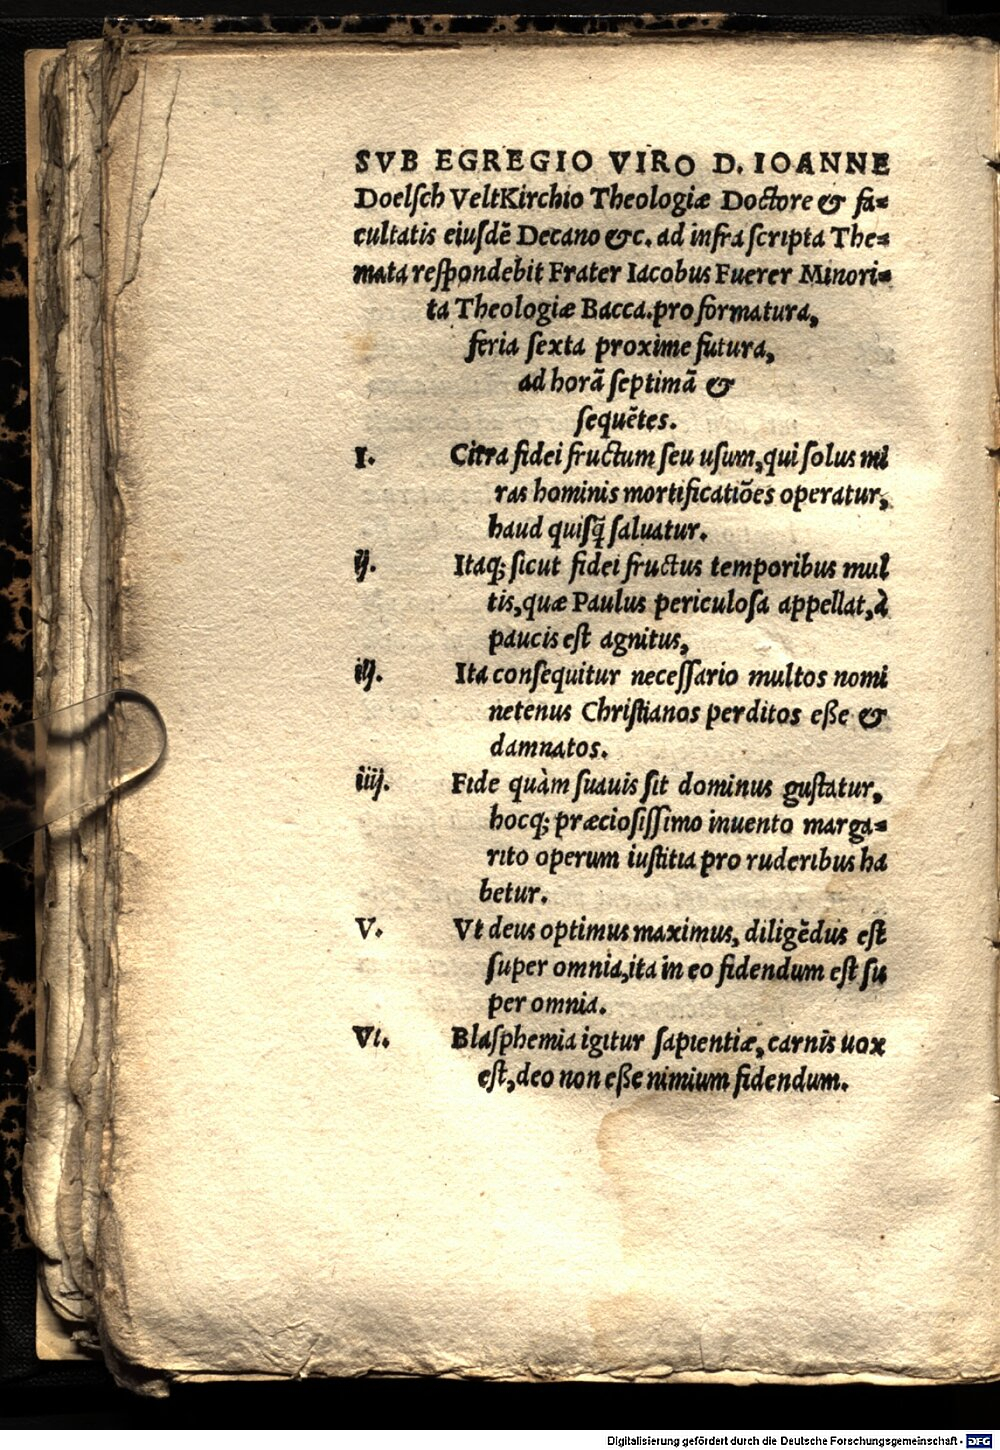 SVB EGREGIO VIRO D. IOANNE
Doelſch VeltKirchio Theologiæ Doctore & fa=
cultatis eiuſdē Decano &c. ad infra ſcripta The=
mata reſpondebit Frater Iacobus Fuerer Minori=
ta Theologiæ Bacca. pro formatura,
feria ſexta proxime futura,
ad horā ſeptimā &
ſequētes.
I. Citra fidei fructum ſeu uſum, qui ſolus mi
ras hominis mortificatiões operatur,
haud quiſq̃ ſaluatur.
ij. Itaq; ſicut fidei fructus temporibus mul
tis, quæ Paulus periculoſa appellat, à
paucis eſt agnitus,
iij. Ita conſequitur neceſſario multos nomi
netenus Chriſtianos perditos eße &
damnatos.
iiij. Fide quàm ſuauis ſit dominus guſtatur,
hocq; præcioſiſſimo inuento marga=
rito operum iuſtitia pro ruderibus ha
betur.
V. Vt deus optimus maximus, diligēdus eſt
ſuper omnia, ita in eo fidendum eſt ſu
per omnia.
Vi. Blaſphemia igitur ſapientiæ, carnis uox
eſt, deo non eße nimium fidendum.
Digitalisierung gefördert durch die Deutsche Forschungsgemeinschaft - DFG